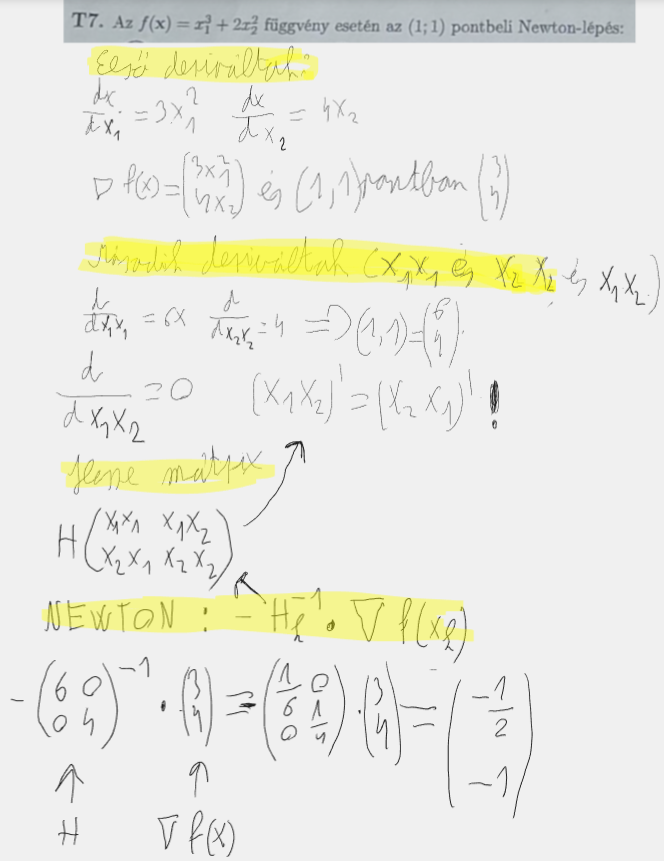 T7. Az f(x) = x₁³ + 2x₂² függvény esetén az (1; 1) pontbeli Newton-lépés:
Első deriváltak:
dx/dx₁ = 3x₁² dx/dx₂ = 4x₂
∇ f(x) = (3x₁² 4x₂) és (1,1) pontban (3 4)
Második deriváltak (x₁x₁ és x₂x₂ és x₁x₂)
d/dx₁x₁ = 6x d/dx₂x₂ = 4 => (1,1) = (6 4)
d/dx₁x₂ = 0 (x₁x₂)' = (x₂x₁)' !
Hesse mátrix
H (x₁x₁ x₁x₂
x₂x₁ x₂x₂)
NEWTON : - Hₖ⁻¹ · ∇ f(xₖ)
- (6 0 0 4)⁻¹ · (3 4) = (1/6 0 0 1/4) · (3 4) = (-1/2 -1)
H ∇ f(x)